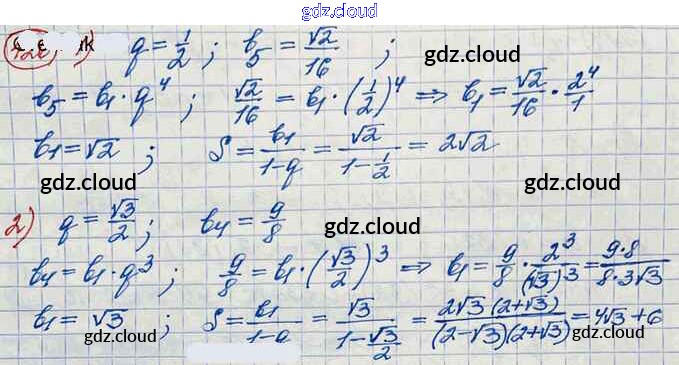 gdz.cloud
1) q = 1/2 ; b₅ = √2/16 ; gdz.cloud
b₅ = b₁ · q⁴ ; √2/16 = b₁ · (1/2)⁴ ⇒ b₁ = √2/16 · 2⁴/1
b₁ = √2 ; S = b₁/(1-q) = √2/(1-1/2) = 2√2
gdz.cloud gdz.cloud gdz.cloud
2) q = √3/2 ; b₄ = 9/8 gdz.cloud
b₄ = b₁ · q³ ; 9/8 = b₁ · (√3/2)³ ⇒ b₁ = 9/8 · 2³/(√3)³ = 9·8/8·3√3
b₁ = √3 ; S = b₁/(1-q) = √3/(1-√3/2) = 2√3(2+√3)/(2-√3)(2+√3) = 4√3+6
gdz.cloud gdz.cloud gdz.cloud